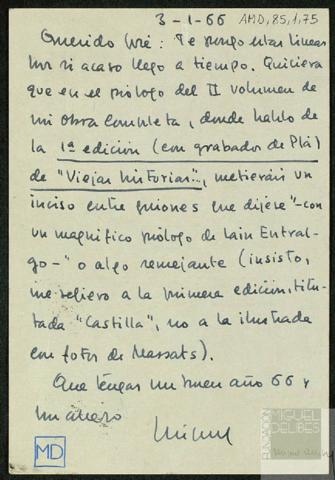 3-1-66
AMD,85,1,75
Querido José: Te pongo estas líneas
por si acaso llego a tiempo. Quisiera
que en el prólogo del II volumen de
mi obra completa, donde hablo de
la 1ª edición (con grabados de Plá)
de "Viejas historias", metierais un
inciso entre guiones que dijese "-con
un magnífico prólogo de Lain Entral-
go-" o algo semejante (insisto,
me refiero a la primera edición, titu-
lada "Castilla", no a la ilustrada
con fotos de Massats).
Que tengas un buen año 66 y
un abrazo
Miguel
MD
FUNDACIÓN
MIGUEL
DELIBES